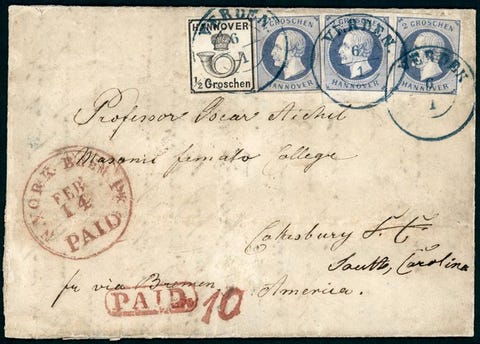 HANNOVER
1/2 Groschen
2 GROSCHEN
HANNOVER
2 GROSCHEN
HANNOVER
2 GROSCHEN
HANNOVER
VERDEN
6
1
VERDEN
6
1
VERDEN
6
1
Professor Oscar Aichel
Masonic female College
N. YORK BREM. PK.
FEB
14
PAID
Cokesbury
South, Carolina
pr via Bremen
America.
PAID.
10